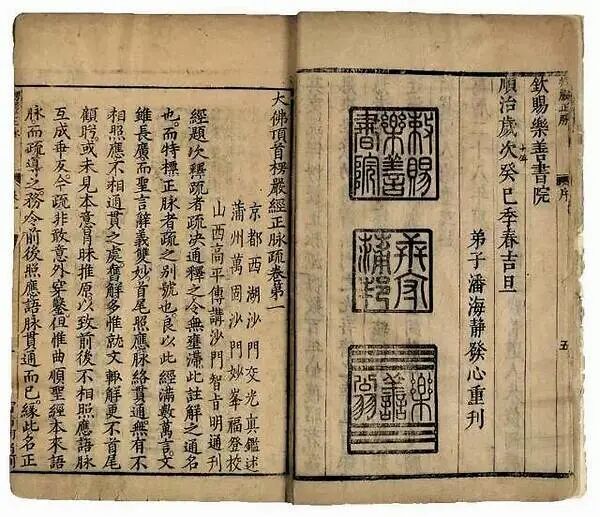 欽賜樂善書院
順治歲次癸巳季春吉旦
十年
弟子潘海靜發心重刊
敕賜樂善書院
序
五
大佛頂首楞嚴經正脉疏卷第一
京都西湖沙門交光真鑑述
蒲州萬固沙門妙峯福登校
山西高平傳講沙門智旨明通刊
經題次釋疏者疏決通釋之令無壅滯此註解之通名
也。而特標正脉者疏之別號也良以此經滿數萬言。文
雖長廣而聖言辭義雙妙首尾照應脉絡貫通無有不
相照應不相通貫之處。舊解多惟就文輙解更不首尾
顧盻或未見本意肯脉推原以致前後不相照應語脉
互成乖反今疏非敢意外穿鑿但惟曲順聖經本來語
脉而疏導之。務令前後照應語脉貫通而已。緣此名正